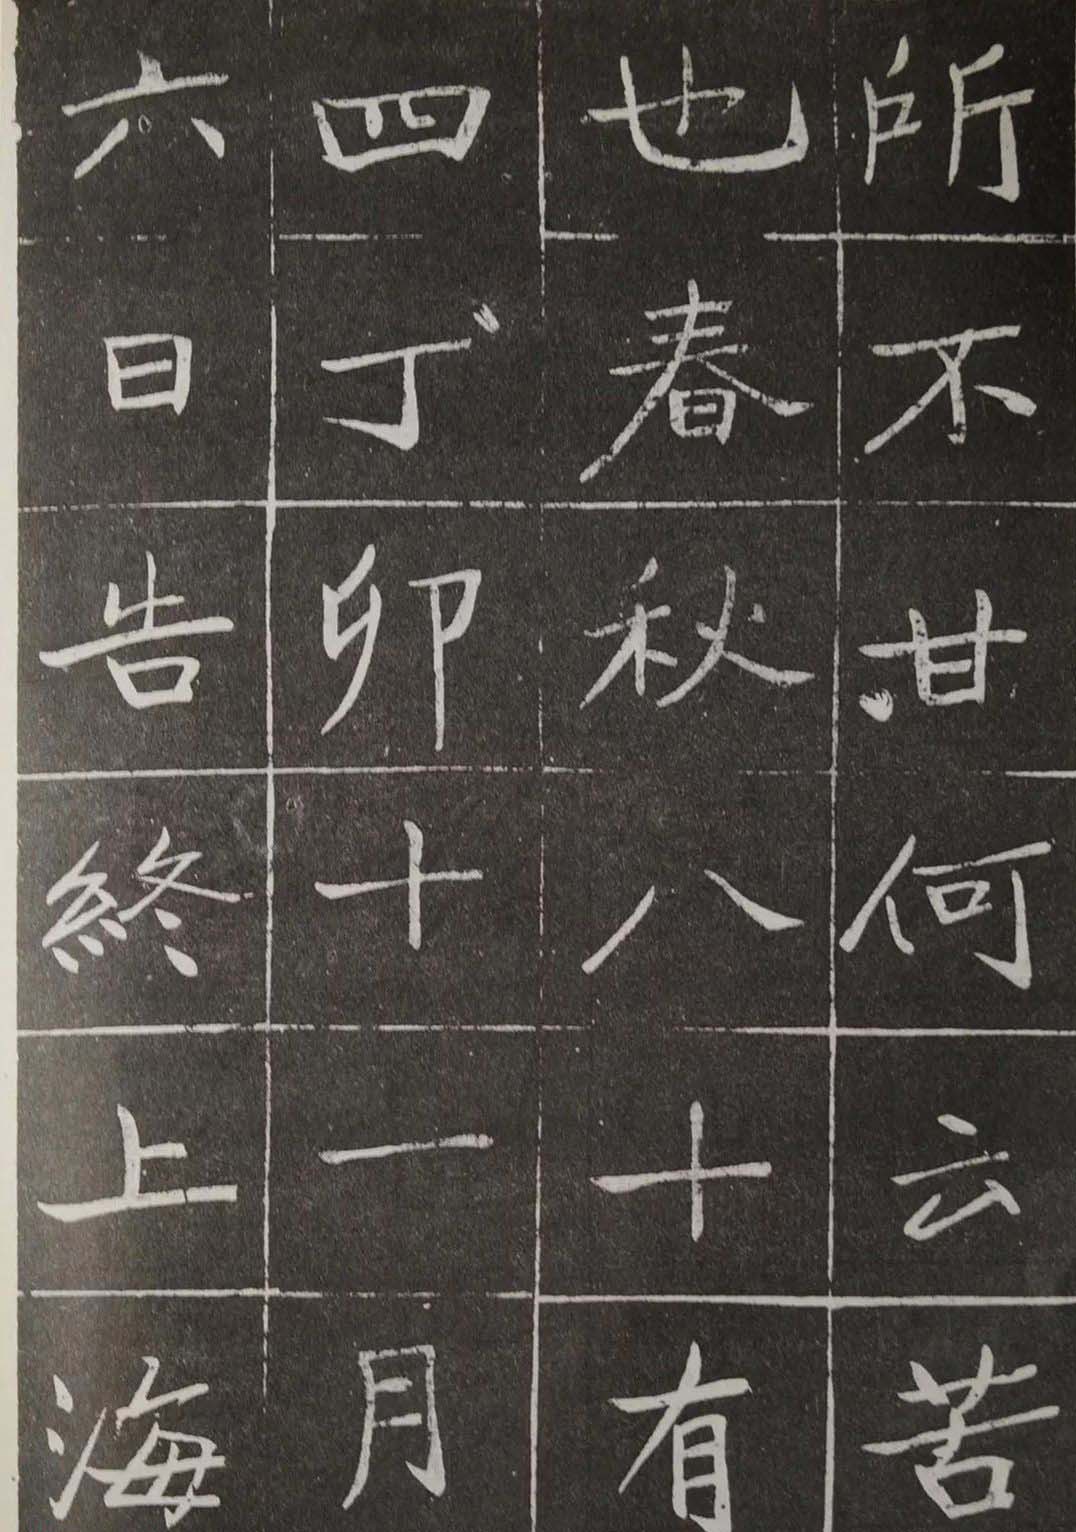 所不甘何云苦
也春秋八十有
四丁卯十一月
六日告終上海